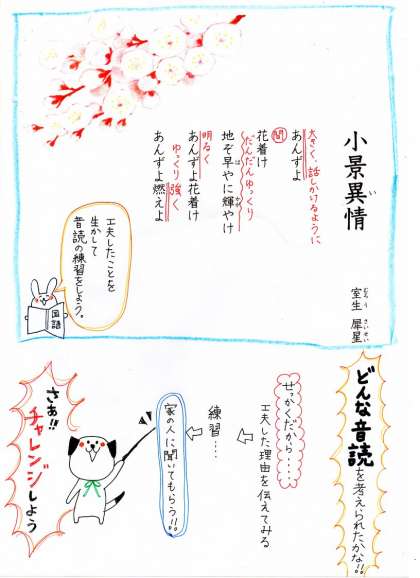 小景異情
室生 犀星
むろう さいせい
い
大きく、話しかけるように
あんずよ
間
花着け
だんだんゆっくり
地ぞ早やに輝やけ
はかがや
明るく
あんずよ花着け
ゆっくり 強く
あんずよ燃えよ
工夫したことを
生かして
音読の練習をしよう。
国語
どんな音読を考えられたかな!!
せっかくだから‥‥‥
工夫した理由を伝えてみる
練習‥‥
家の人に聞いてもらう!!
さあ!!
チャレンジしよう